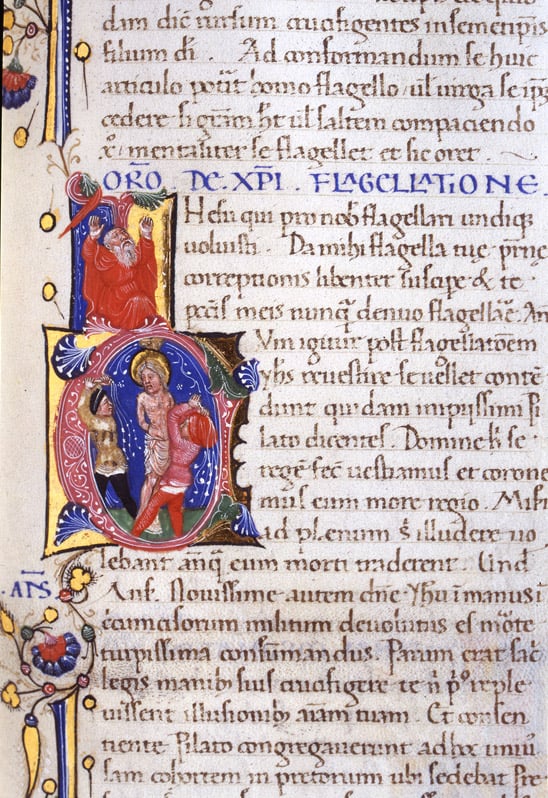 dam dic̄ rursum crucifigentes in semetip̄is
filium dī. Ad conformandum se huic
articulo potit̄ homo flagello ul̄ uirga se ip̄
cedere si gr̄am h̄t ul̄ saltem compaciendo
x̄o mentaliter se flagellet et sic oret.
OR̄O DE XP̄I . FLAGELLATIONE.
Hesu qui pro nob̄ flagellari undiq̨
uoluisti. Da mihi flagella tue pr̄ne
correptionis libenter suscipe & te
pcc̄is meis nunq̄ denuo flagellar̄e. Am
Vm igitur post flagellatōem
yh̄s reuestire se uellet conte
dunt quidam impiissimi Pi
lato dicentes. Domine h̄ se
regē fec̄ uestiamus et corone
mus eum more regio. Mi
ad plenum s̄ illudere uo
lebant anq̄ eum morti traderent. Und
AN̄S.
Ans. Nouissime autem dn̄e yh̄u ī manus ī
c̄cumcisorum militum deuolutus es mōte
turpissima consūmandus. Parum erat sac̄
legis manib̨ suis crucifigere te n̄ p̄o reple
uissent illusionib̨ aīam tuam. Et consen
tiente Pilato congregauerunt ad hoc uniū
sam cohortem in pretorium ubi sedebat Pre